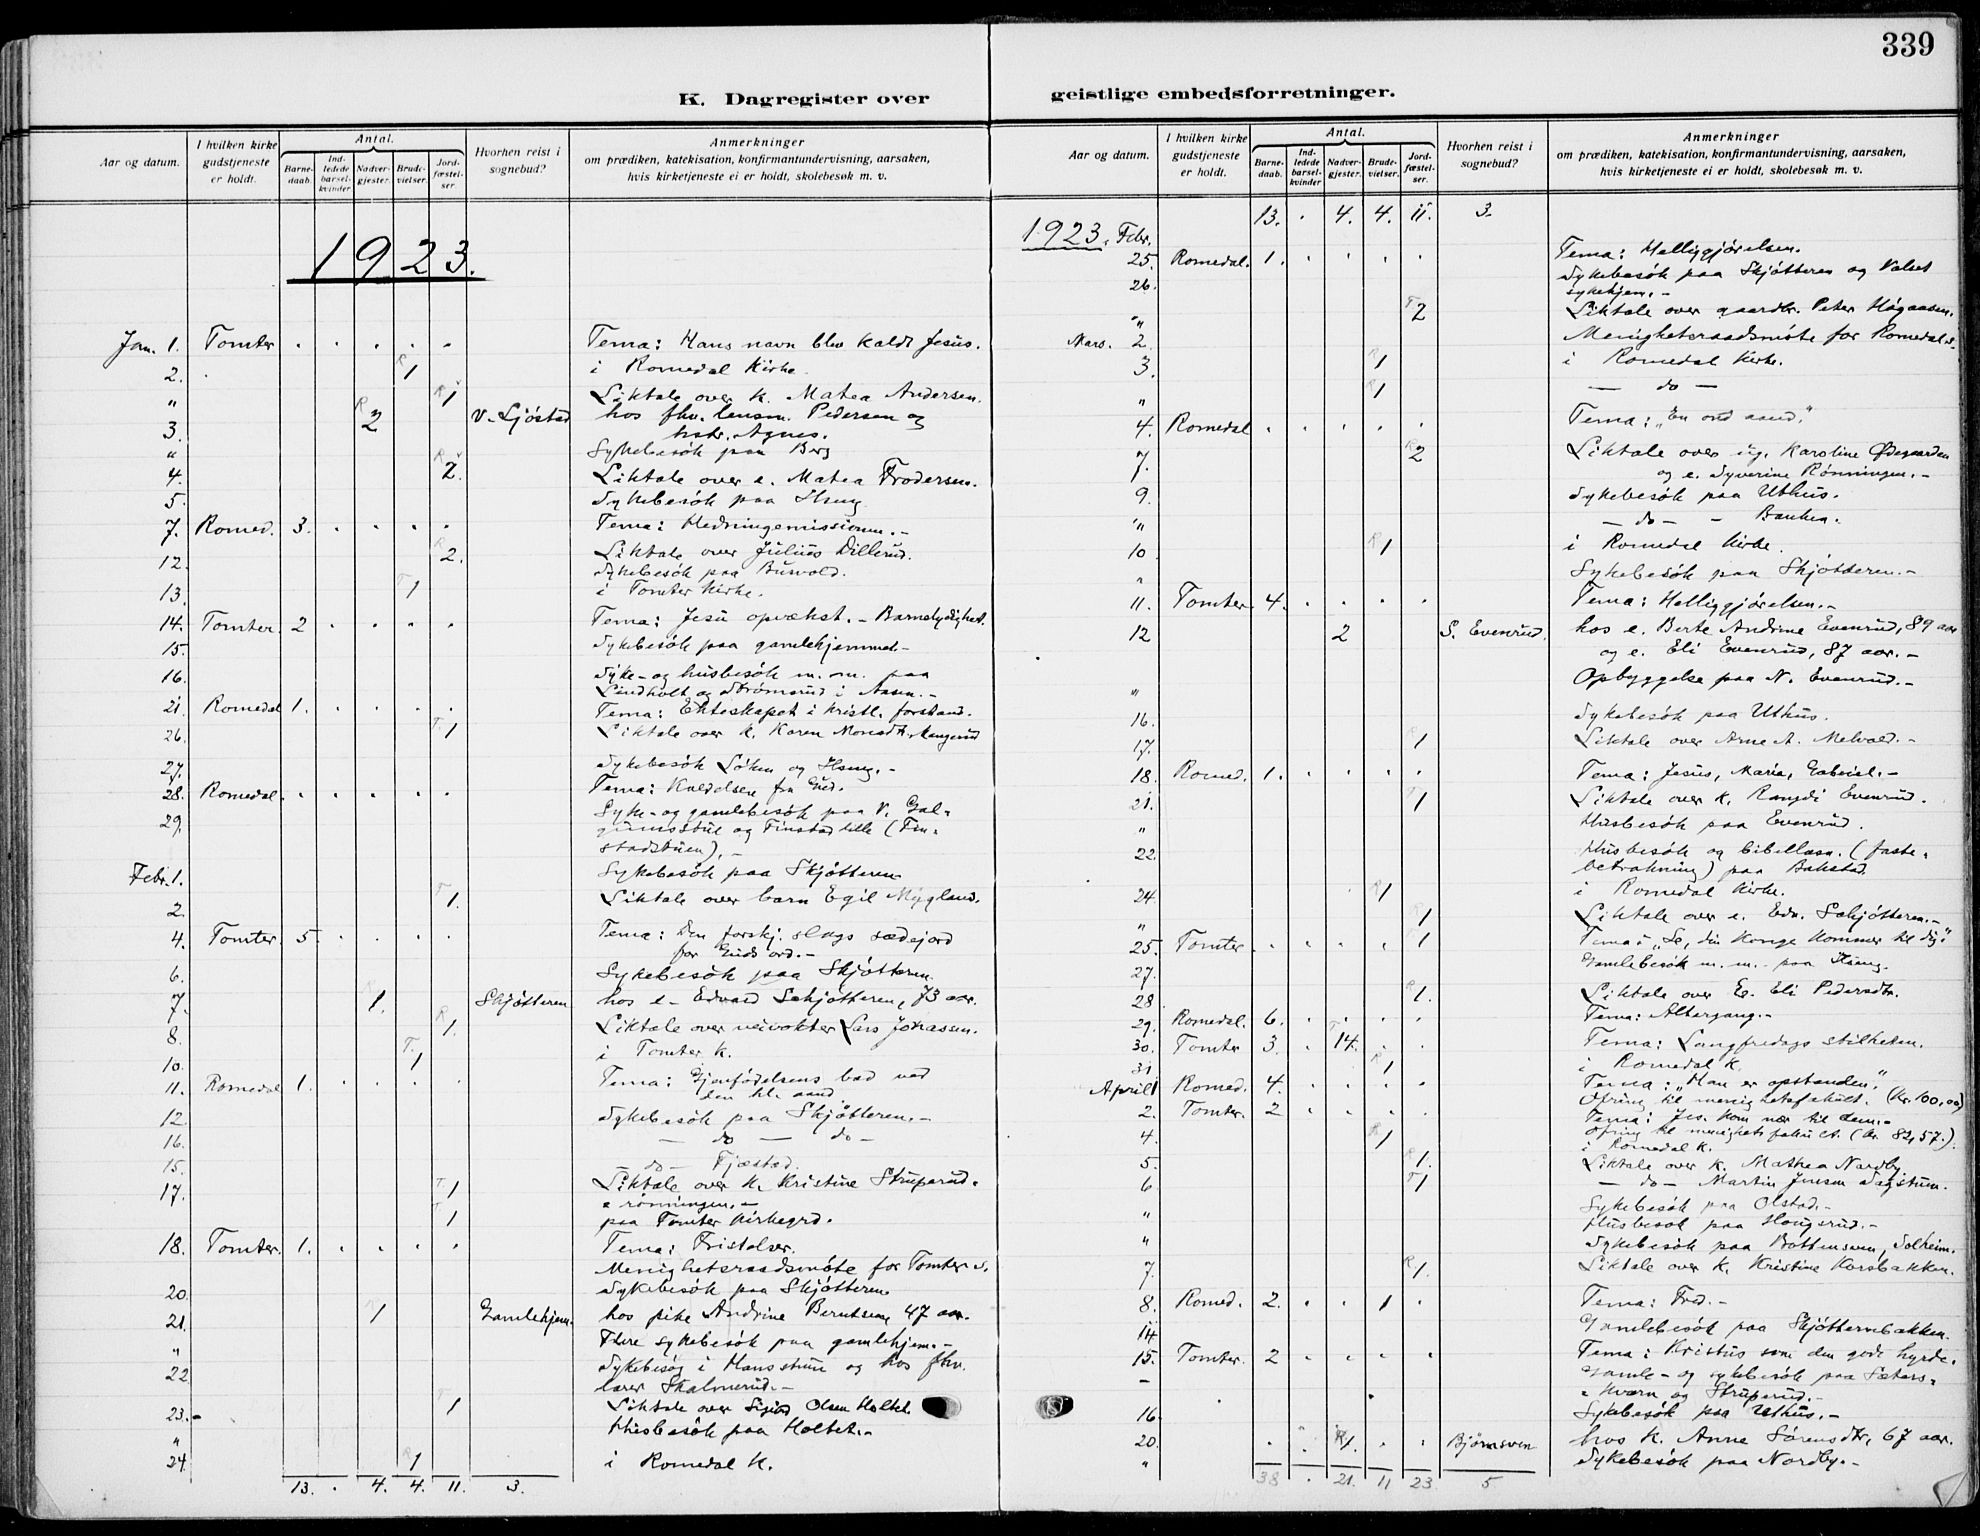 339
K. Dagregister over geistlige embedsforretninger.
Aar og datum.
I hvilken kirke gudstjeneste er holdt.
Antal.
Barnedaab.
Indledede barselkvinder
Nadvergjester.
Brudevielser.
Jordfæstelser.
Hvorhen reist i sognebud?
Anmerkninger
om prædiken, katekisation, konfirmantundervisning, aarsaken,
hvis kirketjeneste ei er holdt, skolebesøk m. v.
1923.
Jan. 1. Tomter . . . . . Tema: Hans navn blev kaldt Jesus.
2. R 1 i Romedal Kirke.
" R 1 Liktale over k. Matea Andersen.
3. R 2 V. Ljøstad hos fhv. lensm. Pedersen og
hstr. Agnes.
" Sykebesök paa Berg
4. R 2. Liktale over e. Matea Frodersen.
5. Sykebesök paa Ilseng
7. Romed. 3. . . . . Tema: Hedningemissionen.-
12. R 2. Liktale over Julius Dillerud.
Sykebesök paa Busvold.
13. T 1 i Tomter Kirke.
14. Tomter 2 . . . . Tema: Jesu opvækst. - Barnelydighet.
15. Sykebesök paa gamlehjemmet.-
16. Syke- og husbesök m. m. paa
Lindholt og Strömsrud i Aasen.-
21. Romedal 1. . . . . Tema: Ekteskapet i kristl. forstand.
26. T. 1 Liktale over k. Karen Monsdtr. Mangerud
27. Sykebesök Löken og Ilseng.-
28. Romedal . . . . . Tema: Kaldelsen fra Gud.
29. Syke- og gamlebesök paa V. Gal-
gumsstue og Finstad lille (Fin-
stadstuen).-
Febr. 1. Sykebesök paa Skjötteren
2. T 1. Liktale over barn Egil Mygland.
4. Tomter. 5. . . . . Tema: Den forskj. slags sædejord
for Guds ord.-
6. Sykebesök paa Skjötteren.
7. 1. Skjötteren hos e- Edvard Schjötteren, 73 aar.
8. R 1. Liktale over veivokter Lars Johansen.
10. T. 1 i Tomter k.
11. Romedal 1. . . . . Tema: Gjenfödelsens bad ved
den hl. aand.
12. Sykebesök paa Skjötteren.-
16. — do — do —
15. — do — Fjæstad.
17. T. 1 Liktale over k. Kristine Struperud-
rönningen.-
T 1 paa Tomter Kirkegrd.
18. Tomter. 1. . . . . Tema: Fristelser.
Menighetsraadsmöte for Tomter s.
20. Sykebesök paa Skjötteren
21. 1 Gamlehjem. hos pike Andrine Berntsen, 47 aar.
" Flere sykebesök paa gamlehjem.-
22 Sykebesög i Hansstuen og hos fhv.
lærer Skalmerud.-
23.- T 1 Liktale over Sigvard Olsen Holtet.
" Husbesök paa Holtet.-
24. R 1 i Romedal K.
13. . 4. 4. 11. 3.
Aar og datum.
I hvilken kirke gudstjeneste er holdt.
Antal.
Barnedaab.
Indledede barselkvinder
Nadvergjester.
Brudevielser.
Jordfæstelser.
Hvorhen reist i sognebud?
Anmerkninger
om prædiken, katekisation, konfirmantundervisning, aarsaken,
hvis kirketjeneste ei er holdt, skolebesøk m. v.
13. . 4. 4. 11. 3.
1923. Febr.
25. Romedal. 1. . . . . Tema: Helliggjörelsen.
26. Sykebesök paa Skjötteren og Valset
sykehjem.-
" T 2 Liktale over gaardbr. Peter Högaasen.
Mars. 2. Menighetsraadsmöte for Romedal s.
3. R 1 i Romedal Kirke.
" R 1 — do —
4. Romedal . . . . . Tema: "En ond aand."
7. R 2 Liktale over ug. Karoline Ødegaarden
og e. Syverine Rönningen.-
9. Sykebesök paa Uthus.
" — do — - Bauken.
10 R 1 i Romedal Kirke.
" Sykebesök paa Skjötteren.-
11. Tomter. 4. . . . . Tema: Helliggjörelsen.-
12 2 S. Evenrud. hos e. Berte Andrine Evenrud, 89 aar
og e. Eli Evenrud, 87 aar.-
" Opbyggelse paa N. Evenrud.-
16. Sykebesök paa Uthus.
17. R 1 Liktale over Arne A. Melvold.-
18. Romed. 1. . . . . Tema: Jesus, Maria, Gabriel.-
21. T 1 Liktale over k. Rangdi Evenrud.
" Husbesök paa Evenrud.
22. Husbesök og bibellæsn. (faste-
betraktning) paa Bakstad.
24. R 1 i Romedal Kirke.
" R 1 Liktale over e. Edv. Schjötteren.-
25. Tomter . . . . T 1 Tema: "Se, din Konge kommer til dig."
27. Gamlebesök m. m. paa Ilseng.
28. R 1. Liktale over E. Eli Pedersdtr.
29. Romedal. 6. . . . . Tema: Altergang.-
30. Tomter 3. . T 14. . . Tema: Langfredags stilheten.
31 R 1 i Romedal k.
April 1 Romed. 4. . . . . Tema: "Han er opstanden."
Ofring til menighetsfakult. (Kr. 100,00)
2. Tomter. 2 . . . . Tema: Jes. kom nær til dem.-
Ofring til menighets fakult. (kr. 82,57.)
4. R 1 i Romedal K.
5. R 1. Liktale over k. Mathea Nordby
6 T 1 — do — Martin Jensen Sagstuen.
" Sykebesök paa Olstad.-
Husbesök paa Hougsrud.-
" Sykebesök paa Bottensveen, Solheim.
7. R 1. Liktale over k. Kristine Korsbakken.
8. Romed. 2. . . 1 . Tema: Fred.-
14 Gamlebesök paa Skjötterenbakken.
15. Tomter. 2 . . . . Tema: Kristus som den gode hyrde.
- Gamle- og sykebesök paa Sæters-
kværn og Struperud.-
16. Sykebesök paa Uthus.-
20. . . R 1. . . Björnsveen hos k. Anne Sörensdtr, 67 aar.
" Sykebesök paa Nordby.-
38 . 21. 11 23 5